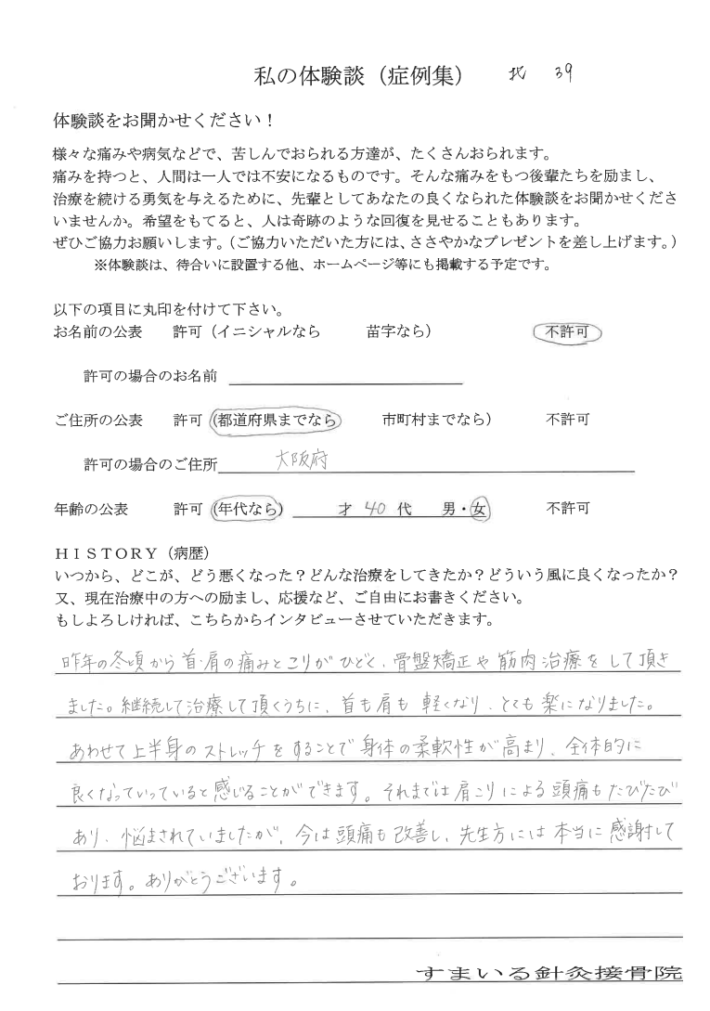 私の体験談（症例集） 北 39
体験談をお聞かせください！
様々な痛みや病気などで、苦しんでおられる方達が、たくさんおられます。
痛みを持つと、人間は一人では不安になるものです。そんな痛みをもつ後輩たちを励まし、
治療を続ける勇気を与えるために、先輩としてあなたの良くなられた体験談をお聞かせくださ
いませんか。希望をもてると、人は奇跡のような回復を見せることもあります。
ぜひご協力お願いします。（ご協力いただいた方には、ささやかなプレゼントを差し上げます。）
※体験談は、待合いに設置する他、ホームページ等にも掲載する予定です。
以下の項目に丸印を付けて下さい。
お名前の公表 許可（イニシャルなら 苗字なら） 不許可
許可の場合のお名前
ご住所の公表 許可（都道府県までなら 市町村までなら） 不許可
許可の場合のご住所 大阪府
年齢の公表 許可（年代なら） 才 40 代 男・女 不許可
ＨＩＳＴＯＲＹ（病歴）
いつから、どこが、どう悪くなった？どんな治療をしてきたか？どういう風に良くなったか？
又、現在治療中の方への励まし、応援など、ご自由にお書きください。
もしよろしければ、こちらからインタビューさせていただきます。
昨年の冬頃から首・肩の痛みとこりがひどく、骨盤矯正や筋肉治療をして頂き
ました。継続して治療して頂くうちに、首も肩も軽くなり、とても楽になりました。
あわせて上半身のストレッチをすることで身体の柔軟性が高まり、全体的に
良くなっていっていると感じることができます。それまでは肩こりによる頭痛もたびたび
あり、悩まされていましたが、今は頭痛も改善し、先生方には本当に感謝して
おります。ありがとうございます。
すまいる針灸接骨院